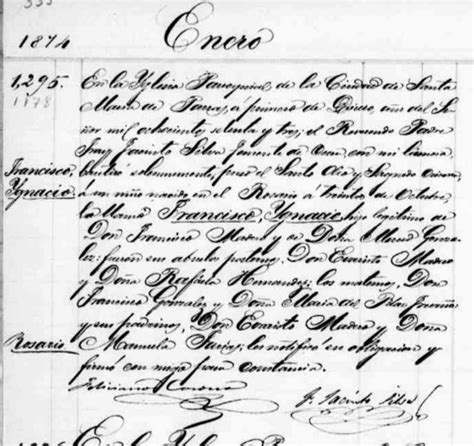 1874
Enero
1,295.
1178
En la Yglesia Parroquial de la Ciudad de Santa
Maria de Parras, á primero de año del Se-
ñor mil ochocientos setenta y tres; el Reverendo Padre
Fray Jacinto Silva teniente de Cura con mi licencia
Francisco, Ygnacio. bautizó solemnemente, puso el Santo Oleo y Sagrado Crisma
á un niño nacido en el Rosario á treinta de Octubre,
le llamó Francisco, Ygnacio, hijo legitimo de
Don Francisco Madero y de Doña Gonza-
lez: fueron sus abuelos paternos, Don Evaristo Madero
y Doña Rafaela Hernandez; los maternos, Don
Francisco Gonzalez y Doña Maria del Pilar
Rosario. y sus padrinos, Don Evaristo Madero y Doña
Manuela Farias, les notifiqué su obligacion y
firmó conmigo para constancia.
F. Jacinto Silva
En la Ygl